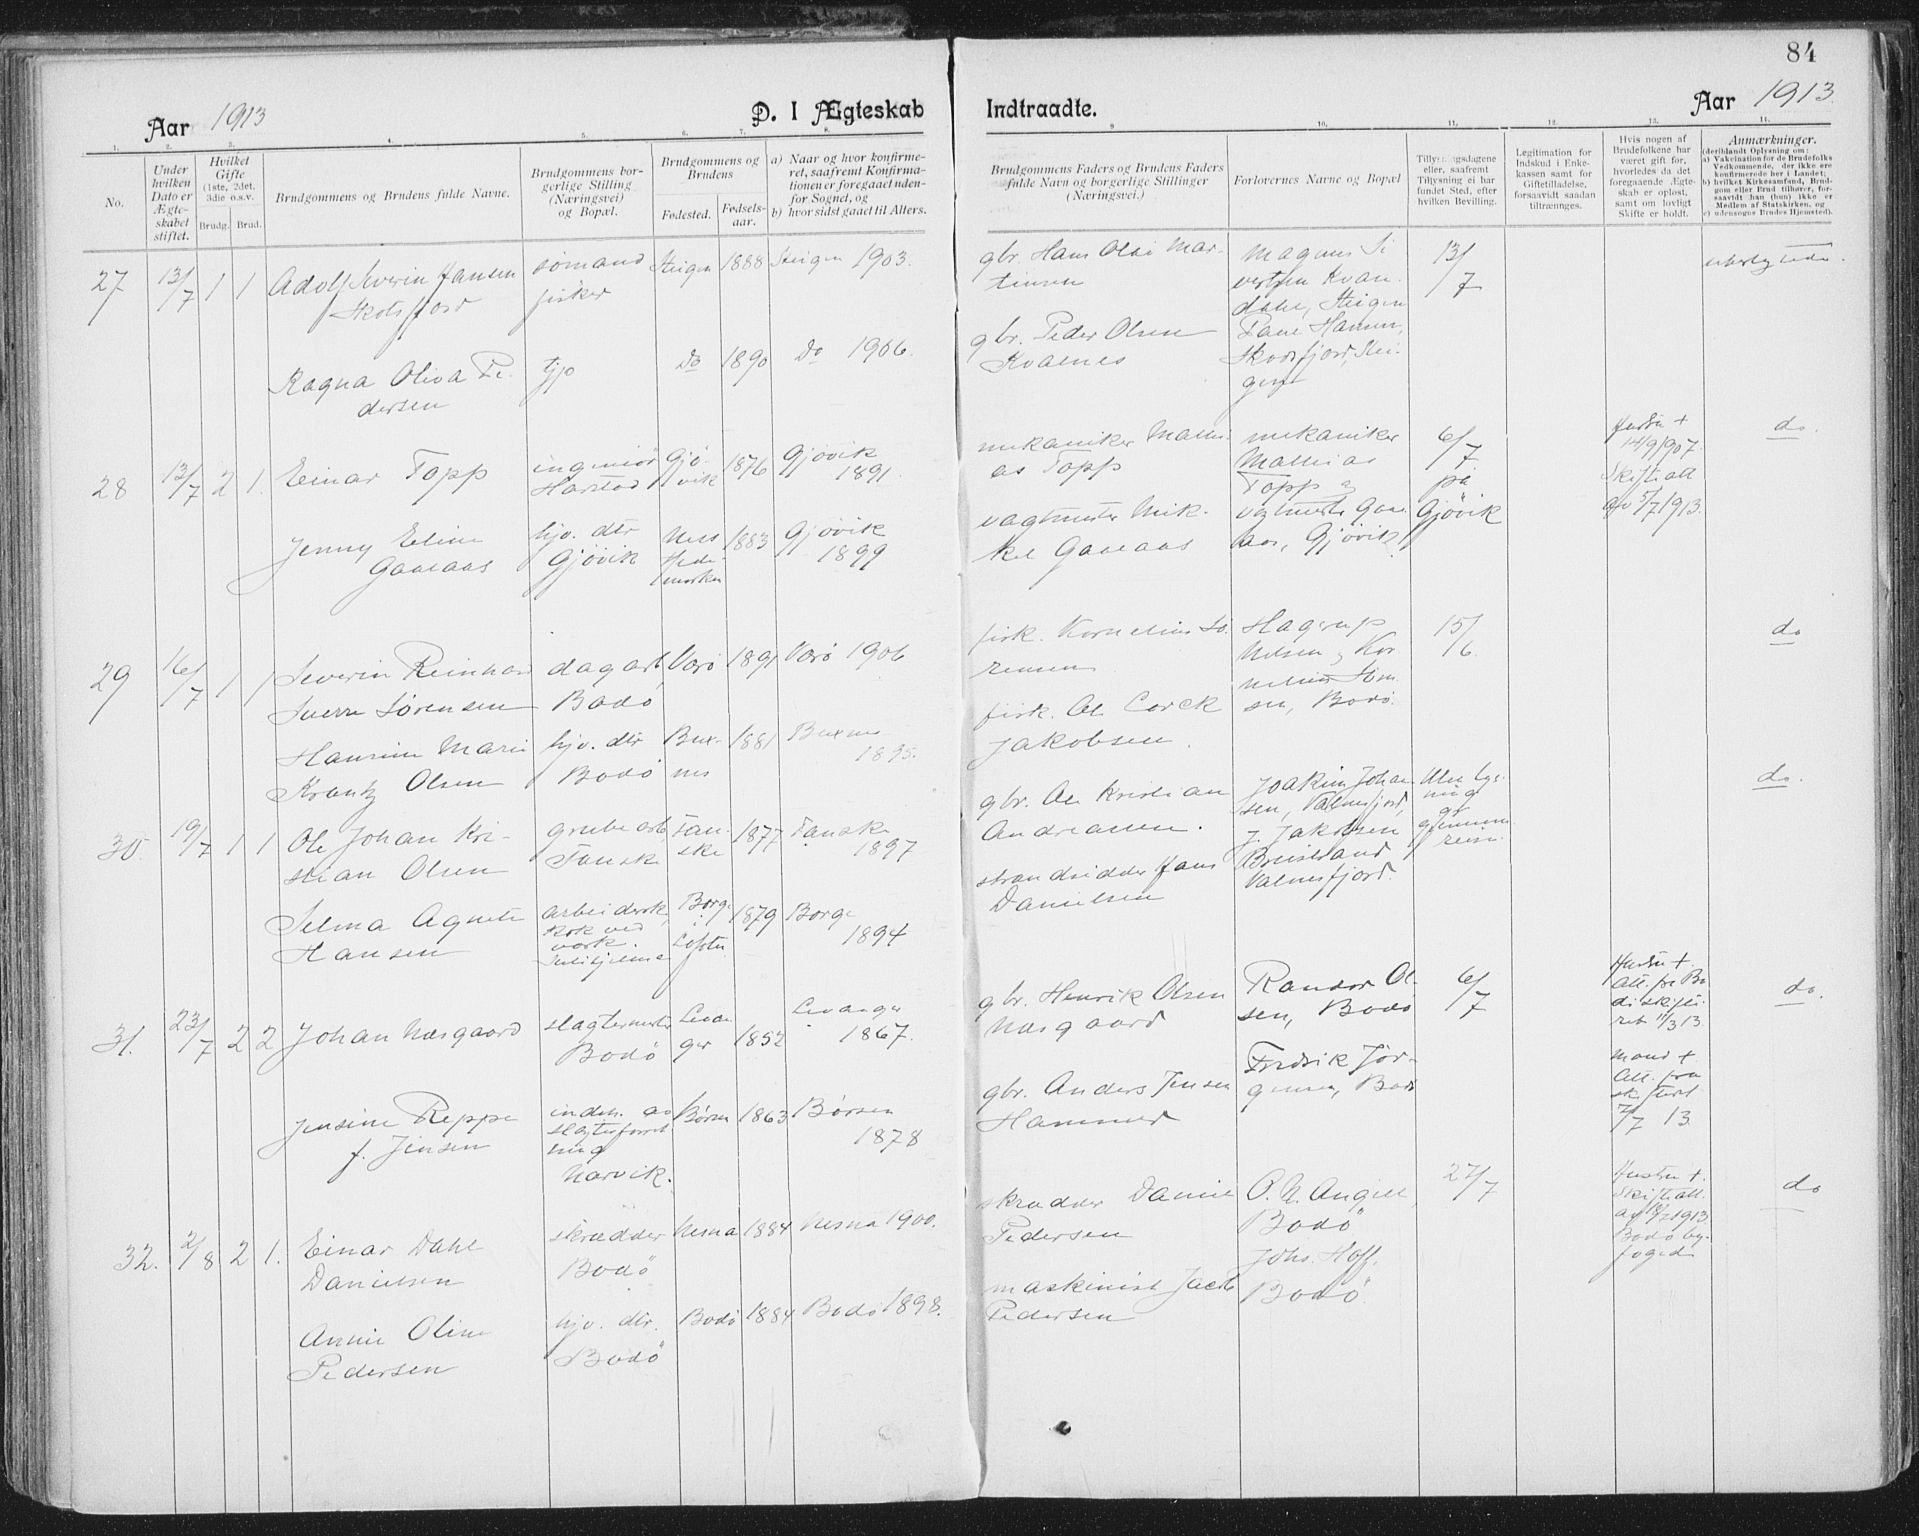 84
Aar 1913
D. I Ægteskab
Indtraadte.
Aar 1913
1. 2. 3. 4. 5. 6. 7. 8. 9 10. 11. 12. 13. 14.
No.
Under
hvilken
Dato er
Ægte-
skabet
stiftet.
Hvilket
Gifte
(1ste, 2det.
3die o.s.v.
Brudg. Brud.
Brudgommens og Brudens fulde Navne.
Brudgommens bor-
gerlige Stilling
(Næringsvei)
og Bopæl.
Brudgommens og
Brudens
Fødested.
Fødsels-
aar.
a) Naar og hvor konfirme-
ret, saafremt Konfirma-
tionen er foregaaet uden-
for Sognet, og
b) hvor sidst gaaet til Alters.
Brudgommens Faders og Brudens Faders
fulde Navn og borgerlige Stillinger
(Næringsvei.)
Forlovernes Navne og Bopæl
Tillysningsdagene
eller, saafremt
Tillysning ei har
fundet Sted, efter
hvilken Bevilling.
Legitimation for
Indskud i Enke-
kassen samt for
Giftetilladelse,
forsaavidt saadan
tiltrænges.
Hvis nogen af
Brudefolkene har
været gift før,
hvorledes da det
foregaaende Ægte-
skab er opløst,
samt om lovligt
Skifte er holdt.
Anmærkninger.
(deriblandt Oplysning om:
a) Vakcination for de Brudefolks
Vedkommende, der ikke ere
konfirmerede her i Landet;
b) hvilket Kirkesamfund, Brud-
gom eller Brud tilhører, for-
saavidt han (hun) ikke er
Medlem af Statskirken, og
c) udensogns Brudes Hjemsted).
27 13/7 1 1 Adolf Severin Hansen
Skotsfjord
sømand
fisker
Steigen 1888 Steigen 1903.
gbr. Hans Olai Mar-
tinsen
Magnus Si
vertsen Kvan-
dahl, Steigen
13/7
Ragna Oliva Pe-
dersen
tjp Do 1890 Do 1906.
gbr. Peder Olsen
Kvalnes
Paul Hansen,
Skotsfjord, Stei-
gen
28 13/7 2 1. Einar Topp
ingeniör
Harstad
Gjö-
vik
1876 Gjøvik
1891.
mekaniker Mathi-
as Topp
mekaniker
Mathias
Topp og
6/7
på
Gjövik
Hustru +
14/9 1907.
Skifteatt
af 5/7 1913.
do.
Jenny Eline
Gaalaas
hjv. dtr
Gjövik
Ness
Hede-
marken
1883 Gjøvik
1899
vagtmester Mik-
kel Gaalaas
vagtmester Gaa-
laas, Gjövik
29 16/7 1 1 Severin Reinhard
Sverre Sørensen
dagarb.
Bodö
Værö 1891 Værö 1906
fisk. Kornelius Sö-
rensen
Hagerup
Nilsen og Kor
nelius Sören
sen, Bodö.
15/6.
do
Hansine Marie
Krantz Olsen
hjv. dtr
Bodö
Bux-
nes
1881 Buxnes
1895.
fisk. Ole Corek
Jakobsen.
30. 19/7 1 1 Ole Johan Kri-
stian Olsen
grubearb.
Fauske
Fau-
ske
1877 Fauske
1897
gbr. Ole Kristian
Andreassen.
Joakim Johan-
sen, Valnesfjord,
J. Jakobsen
Valnesfjord.
do.
Selma Agnete
Hansen
arbeiderske,
kok ved
verk.
Sulitjelma
Borge
Lofoten
1879 Borge
1894
strandsidder Hans
Danielsen
31. 23/7 2 2 Johan Næsgaard
slagtermester
Bodö
Levan-
ger
1852 Levanger
1867.
gbr. Henrik Olsen
Næsgaard
Randor Ol-
sen, Bodö
6/7
Hustru +
Att. fra Bo-
dö skifte-
ret 11/3 13.
do.
Jensine Reppe
f. Jensen
indeh. av
slagterforret
ning
Narvik.
Børsen 1863 Børsen
1878
gbr. Anders Jensen
Hammer
Fredrik Jör-
gensen, Bodö
Mand +
Att. fra
skifteret
7/7 13
32. 2/8 2 1. Einar Dahl
Danielsen
skrædder
Bodö
Nesna 1884 Nesna 1900.
skrædder Daniel
Pedersen
O. N. Angell,
Bodö
27/7
Hustru +
Skifteatt.
Bodö by-
foged
do
Annie Oline
Pedersen
hjv. dtr.
Bodö
Bodö 1884 Bodö 1898.
maskinist Jacob
Pedersen
Johs. Hoff,
Bodö